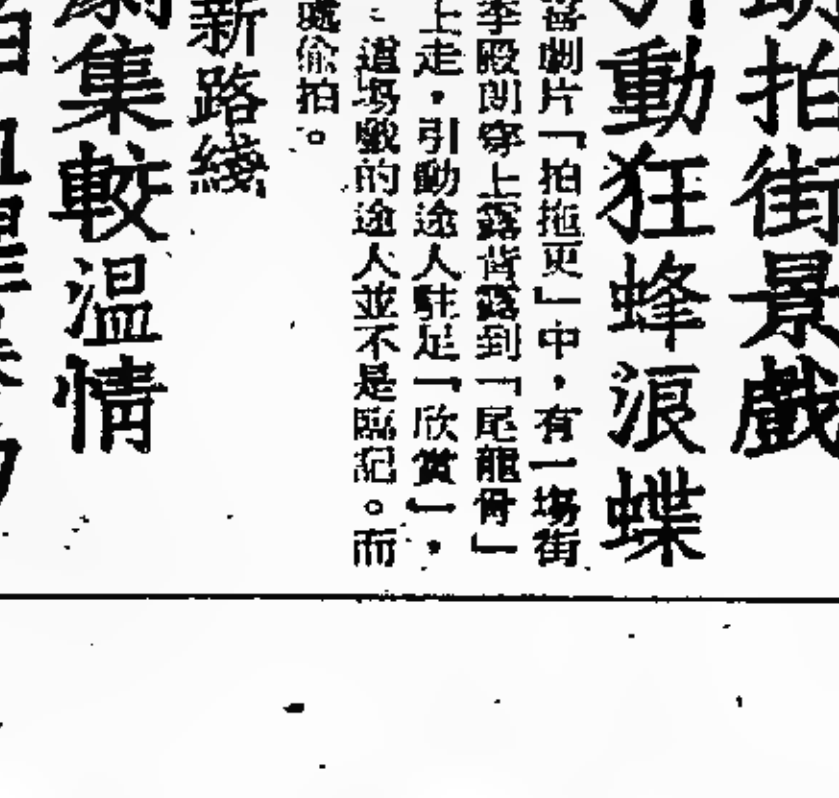 拍街景戲
動狂蜂浪蝶
喜劇片「拍拖更」中，有一場街
李殿朗穿上露背露到「尾龍骨」
上走，引動途人駐足「欣賞」，
這場戲的途人並不是臨記。而
處偷拍。
新路綫
劇集較溫情